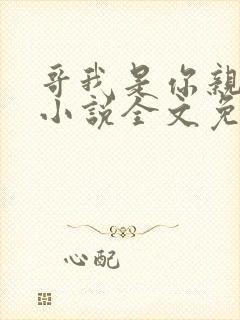 哥我是你親
小說全文免
心配